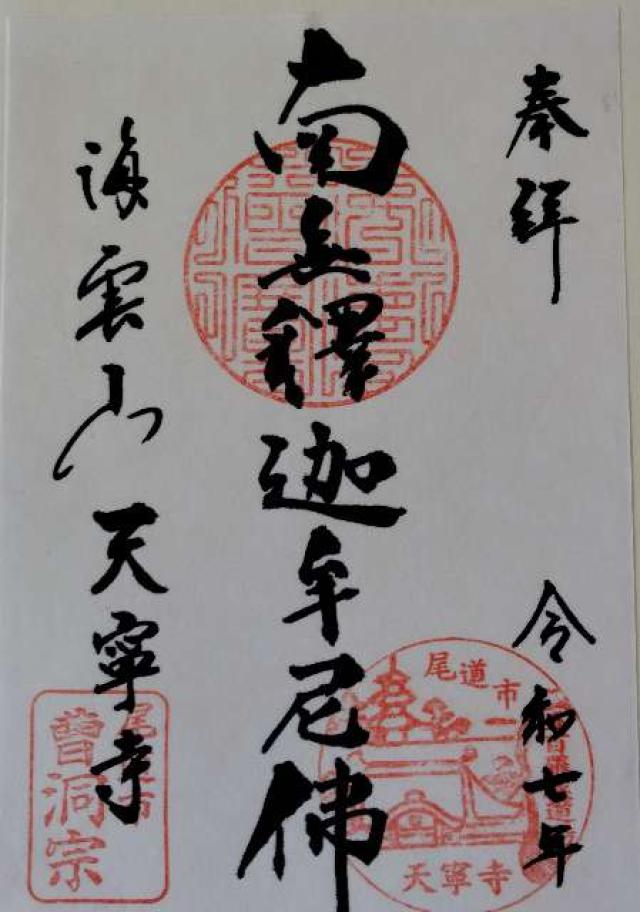 奉拝
令和七年
南無釋迦牟尼佛
海雲山 天寧寺
尾道市
天寧寺
曹洞宗